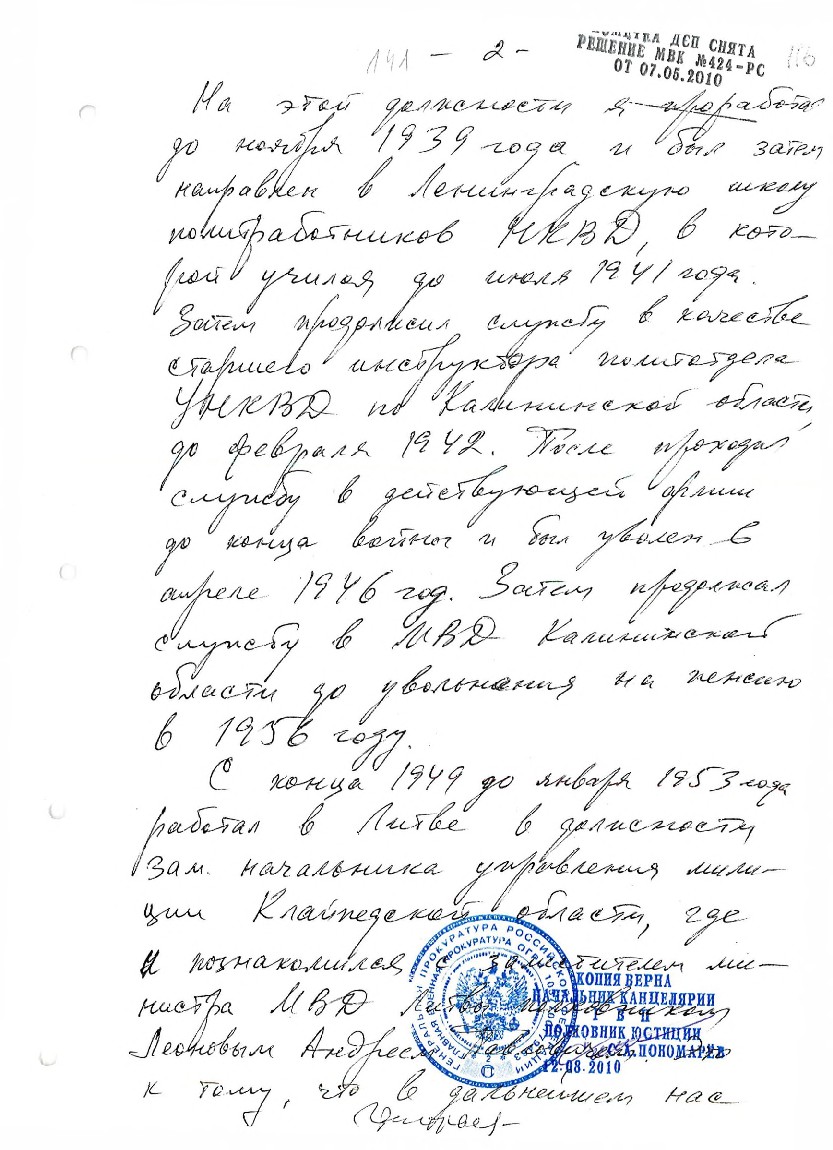 141 - 2 -
ДСП СНЯТА
РЕШЕНИЕ МВК №424-РС
ОТ 07.05.2010
116
На этой должности я проработал
до ноября 1939 года и был затем
направлен в Ленинградскую школу
политработников НКВД, в кото-
рой учился до июля 1941 года.
Затем продолжил службу в качестве
старшего инструктора политотдела
УНКВД по Калининской области,
до февраля 1942. После проходил
службу в действующей армии
до конца войны и был уволен в
апреле 1946 год. Затем продолжал
службу в МВД Калининской
области до увольнения на пенсию
в 1956 году.
С конца 1949 до января 1953 года
работал в Литве в должности
зам. начальника управления мили-
ции Клайпедской области, где
я познакомился с заместителем ми-
нистра МВД Литвы полковником
Леоновым Андреем
к тому, что в дальнейшем нас
КОПИЯ ВЕРНА
НАЧАЛЬНИК КАНЦЕЛЯРИИ
ПОЛКОВНИК ЮСТИЦИИ
ПОНОМАРЕВ
12.08.2010
ГЕНЕРАЛЬНАЯ ПРОКУРАТУРА РОССИЙСКОЙ ФЕДЕРАЦИИ
ГЛАВНАЯ ВОЕННАЯ ПРОКУРАТУРА